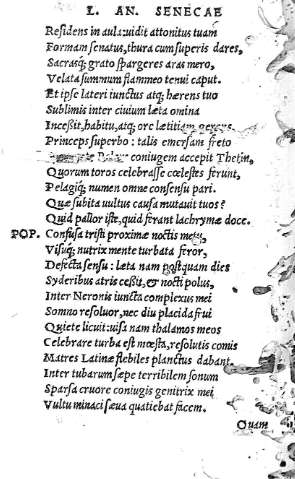 L. AN. SENECAE
Residens in aula: uidit attonitus tuam
Formam senatus, thura cum superis dares,
Sacrasq; grato spargeres aras mero,
Velata summum flammeo tenui caput.
Et ipse lateri iunctus atq; hærens tuo
Sublimis inter ciuium læta omina
Incessit, habitu, atq; ore lætitiam gerens
Princeps superbo: talis emersam freto
coniugem accepit Thetin,
Quorum toros celebrasse cœlestes ferunt,
Pelagiq; numen omne consensu pari.
Quæ subita uultus causa mutauit tuos?
Quid pallor iste, quid ferant lachrymæ doce.
POP. Confusa tristi proximæ noctis metu,
Visuq; nutrix mente turbata feror,
Defecta sensu: læta nam postquam dies
Syderibus atris ceßit, et nocti polus,
Inter Neronis iuncta complexus mei
Somno resoluor, nec diu placida frui
Quiete licuit: uisa nam thalamos meos
Celebrare turba est mœsta, resolutis comis
Matres Latinæ flebiles planctus dabant.
Inter tubarum sæpe terribilem sonum
Sparsa cruore coniugis genitrix mei
Vultu minaci sæua quatiebat facem.
Quam